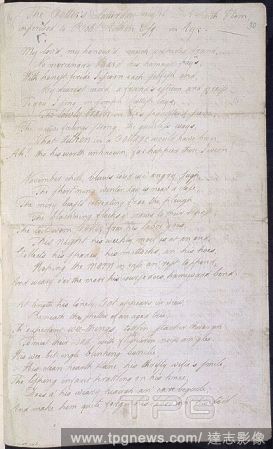 The Cotter's Saturday night
inscribed to R. Aiken Esq. in Ayr
30
My lov'd, my honour'd, much respected friend,
No mercenary Bard his homage pays,
With honest pride I scorn each selfish end,
My dearest meed, a friend's esteem and praise
To you I sing, in simple Scottish lays,
The lowly train in life's sequester'd scene
The native feelings strong, the guileless ways,
What Aiken in a Cottage would have been,
Ah! tho his worth unknown, far happier there I ween
November chill blaws loud wi' angry sugh
The short'ning winter day is near a close
The miry beasts retreating frae the pleugh
The black'ning
The toil-worn Cotter frae his labor goes,
This night his weekly moil is at an end,
Collects his spades, his mattocks and his hoes,
Hoping the morn in ease and rest to spend,
And weary o'er the moor his course does hameward bend
At length his lonely Cot appears in view,
Beneath the shelter of an aged tree
Th' expectant wee-things, toddlin, stacher through
To meet their Dad, wi' flichterin noise
His wee bit ingle blinkin bonilie
His clean hearth-stane, his thrifty wifie's smile,
The lisping infant prattling on his knee,
Does a' his weary
And make him quite forget his
TPG
www.tpgnews.com / 達志影像